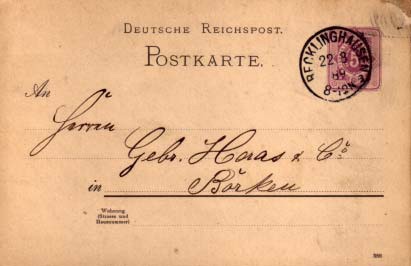 DEUTSCHE REICHSPOST.
POSTKARTE.
RECKLINGHAUSEN
22 8
89
8-12V.
5
An
Herren
Gebr. Haas & Cº
in Borken
Wohnung
(Strasse und
Hausnummer)